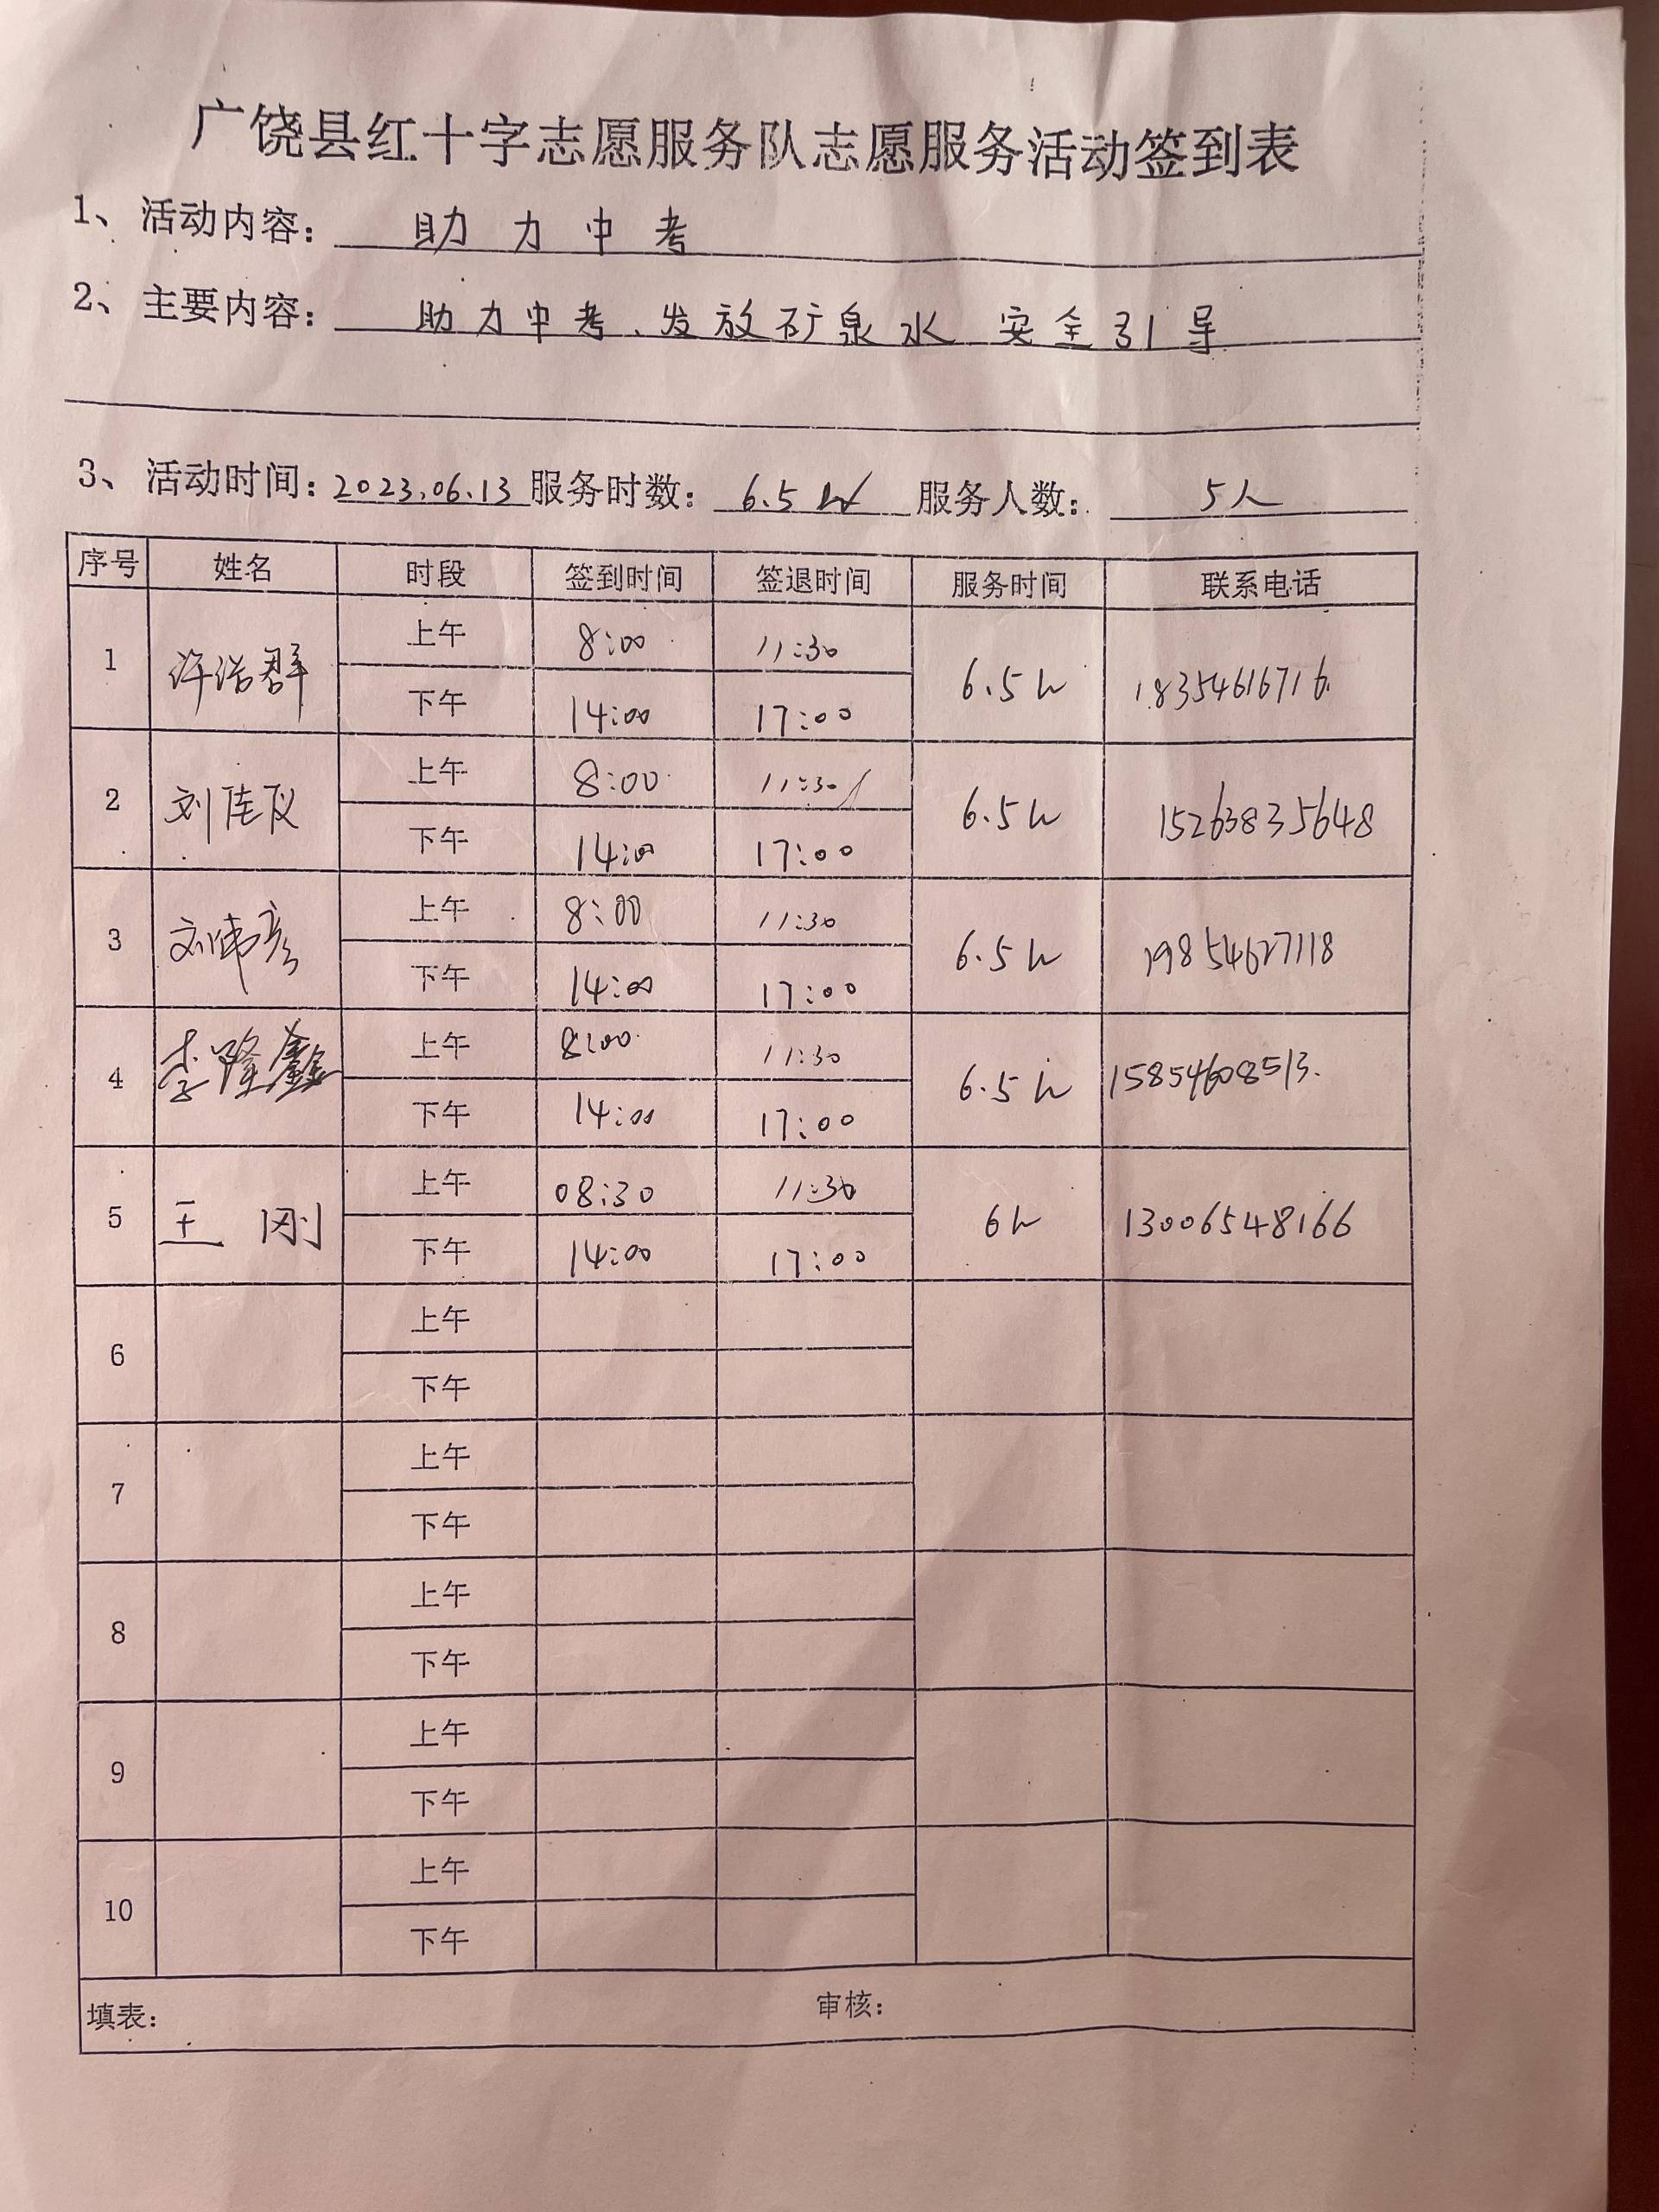 广饶县红十字志愿服务队志愿服务活动签到表
1、活动内容: 助力中考
2、主要内容: 助力中考、发放矿泉水 安全引导
3、活动时间: 2023.06.13 服务时数: 6.5h 服务人数: 5人
序号 姓名 时段 签到时间 签退时间 服务时间 联系电话
1 许浩群 上午 8:00 11:30 6.5h 18354616716
下午 14:00 17:00
2 刘佳仪 上午 8:00 11:30 6.5h 15263835648
下午 14:00 17:00
3 刘伟彦 上午 8:00 11:30 6.5h 19854627118
下午 14:00 17:00
4 李隆鑫 上午 8:00 11:30 6.5h 15854608513.
下午 14:00 17:00
5 王刚 上午 08:30 11:30 6h 13006548166
下午 14:00 17:00
6 上午
下午
7 上午
下午
8 上午
下午
9 上午
下午
10 上午
下午
填表: 审核: